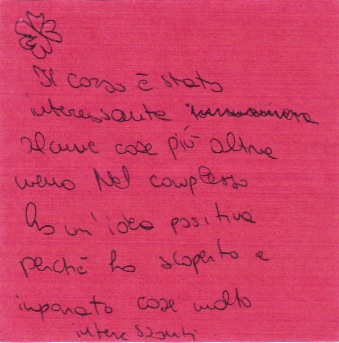 Il corso è stato
interessante
alcune cose più altre
meno Nel complesso
ho un'idea positiva
perché ho scoperto e
imparato cose molto
interessanti